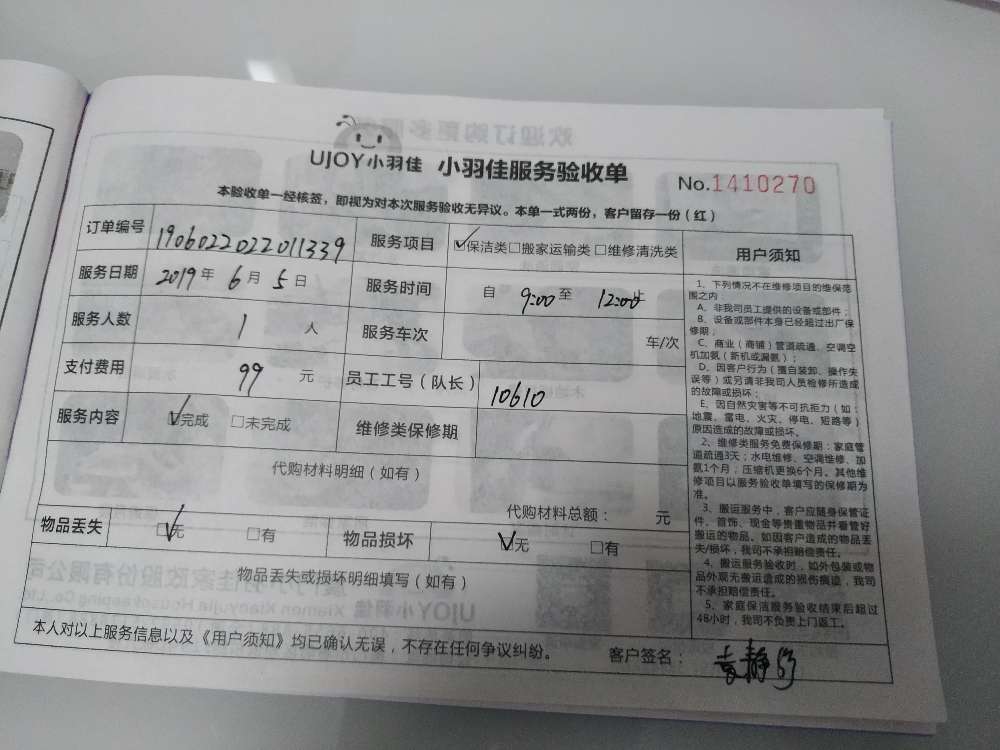 UJOY小羽佳 小羽佳服务验收单 No.1410270
本验收单一经核签，即视为对本次服务验收无异议。本单一式两份，客户留存一份（红）
订单编号 1906022022011339 服务项目 ☑保洁类□搬家运输类 □维修清洗类
服务日期 2019年 6月 5日 服务时间 自 9:00至 12:00止
服务人数 1 人 服务车次 车/次
支付费用 99 元 员工工号（队长） 10610
服务内容 ☑完成 □未完成 维修类保修期
代购材料明细（如有）
代购材料总额： 元
物品丢失 ☑无 □有 物品损坏 ☑无 □有
物品丢失或损坏明细填写（如有）
本人对以上服务信息以及《用户须知》均已确认无误，不存在任何争议纠纷。 客户签名：
用户须知
1、下列情况不在维修项目的维保范
围之内：
A、非我司员工提供的设备或部件；
B、设备或部件本身已经超过出厂保
修期；
C、商业（商铺）管道疏通、空调空
机加氨（新机或漏氨）；
D、因客户行为（擅自装卸、操作失
误等）或另请非我司人员检修所造成
的故障或损坏；
E、因自然灾害等不可抗拒力（如：
地震、雷电、火灾、停电、短路等）
原因造成的故障或损坏。
2、维修类服务免费保修期：家庭管
道疏通3天；水电维修、空调维修、加
氨1个月；压缩机更换6个月。其他维
修项目以服务验收单填写的保修期为
准。
3、搬运服务中，客户应随身保管证
件、首饰、现金等贵重物品并看管好
搬运的物品。如因客户造成的物品丢
失/损坏，我司不承担赔偿责任。
4、搬运服务验收时，如外包装或物
品外观无搬运造成的损伤痕迹，我司
不承担赔偿责任。
5、家庭保洁服务验收结束后超过
48小时，我司不负责上门返工。